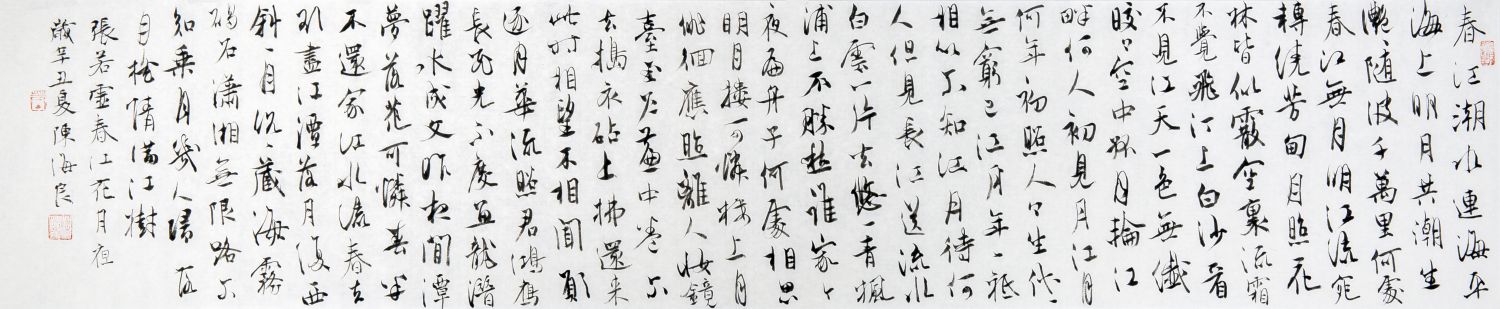 春江潮水連海平
海上明月共潮生
灔隨波千萬里何處
春江無月明江流宛
轉繞芳甸月照花
林皆似霰空裏流霜
不覺飛汀上白沙看
不見江天一色無纖
皎々空中孤月輪江
畔何人初見月江月
何年初照人々生代々
無窮已江月年々祇
相似不知江月待何
人但見長江送流水
白雲一片去悠々青楓
浦上不勝愁誰家今
夜扁舟子何處相思
明月樓可憐樓上月
徘徊應照離人妝鏡
臺玉戶簾中卷不
去擣衣砧上拂還來
此時相望不相聞願
逐月華流照君鴻雁
長飛光不度魚龍潛
躍水成文昨夜閒潭
夢落花可憐春半
不還家江水流春去
欲盡江潭落月復西
斜々月沉々藏海霧
碣石瀟湘無限路不
知乘月幾人歸落
月搖情滿江樹
張若虛春江花月夜
歲辛丑夏陳海良